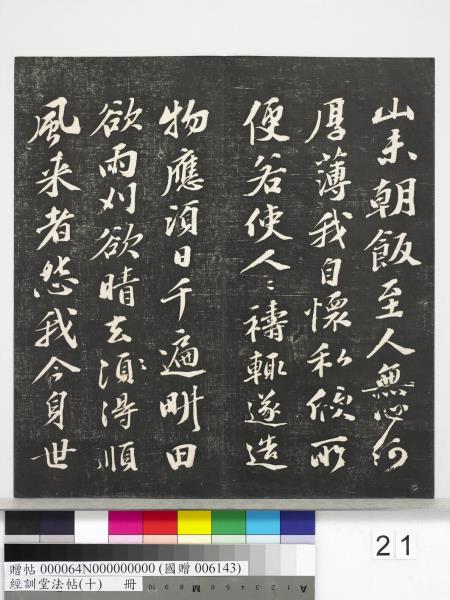 山未朝飯至人無心何
厚薄我自懷私欣所
便若使人〻禱輒遂造
物應須日千遍畊田
欲雨刈欲晴去須得順
風来者怨我今身世
21
贈帖 000064N000000000 (國贈 006143)
經訓堂法帖(十) 冊
10 9 8 7 6 M 5 4 3 2 1 A